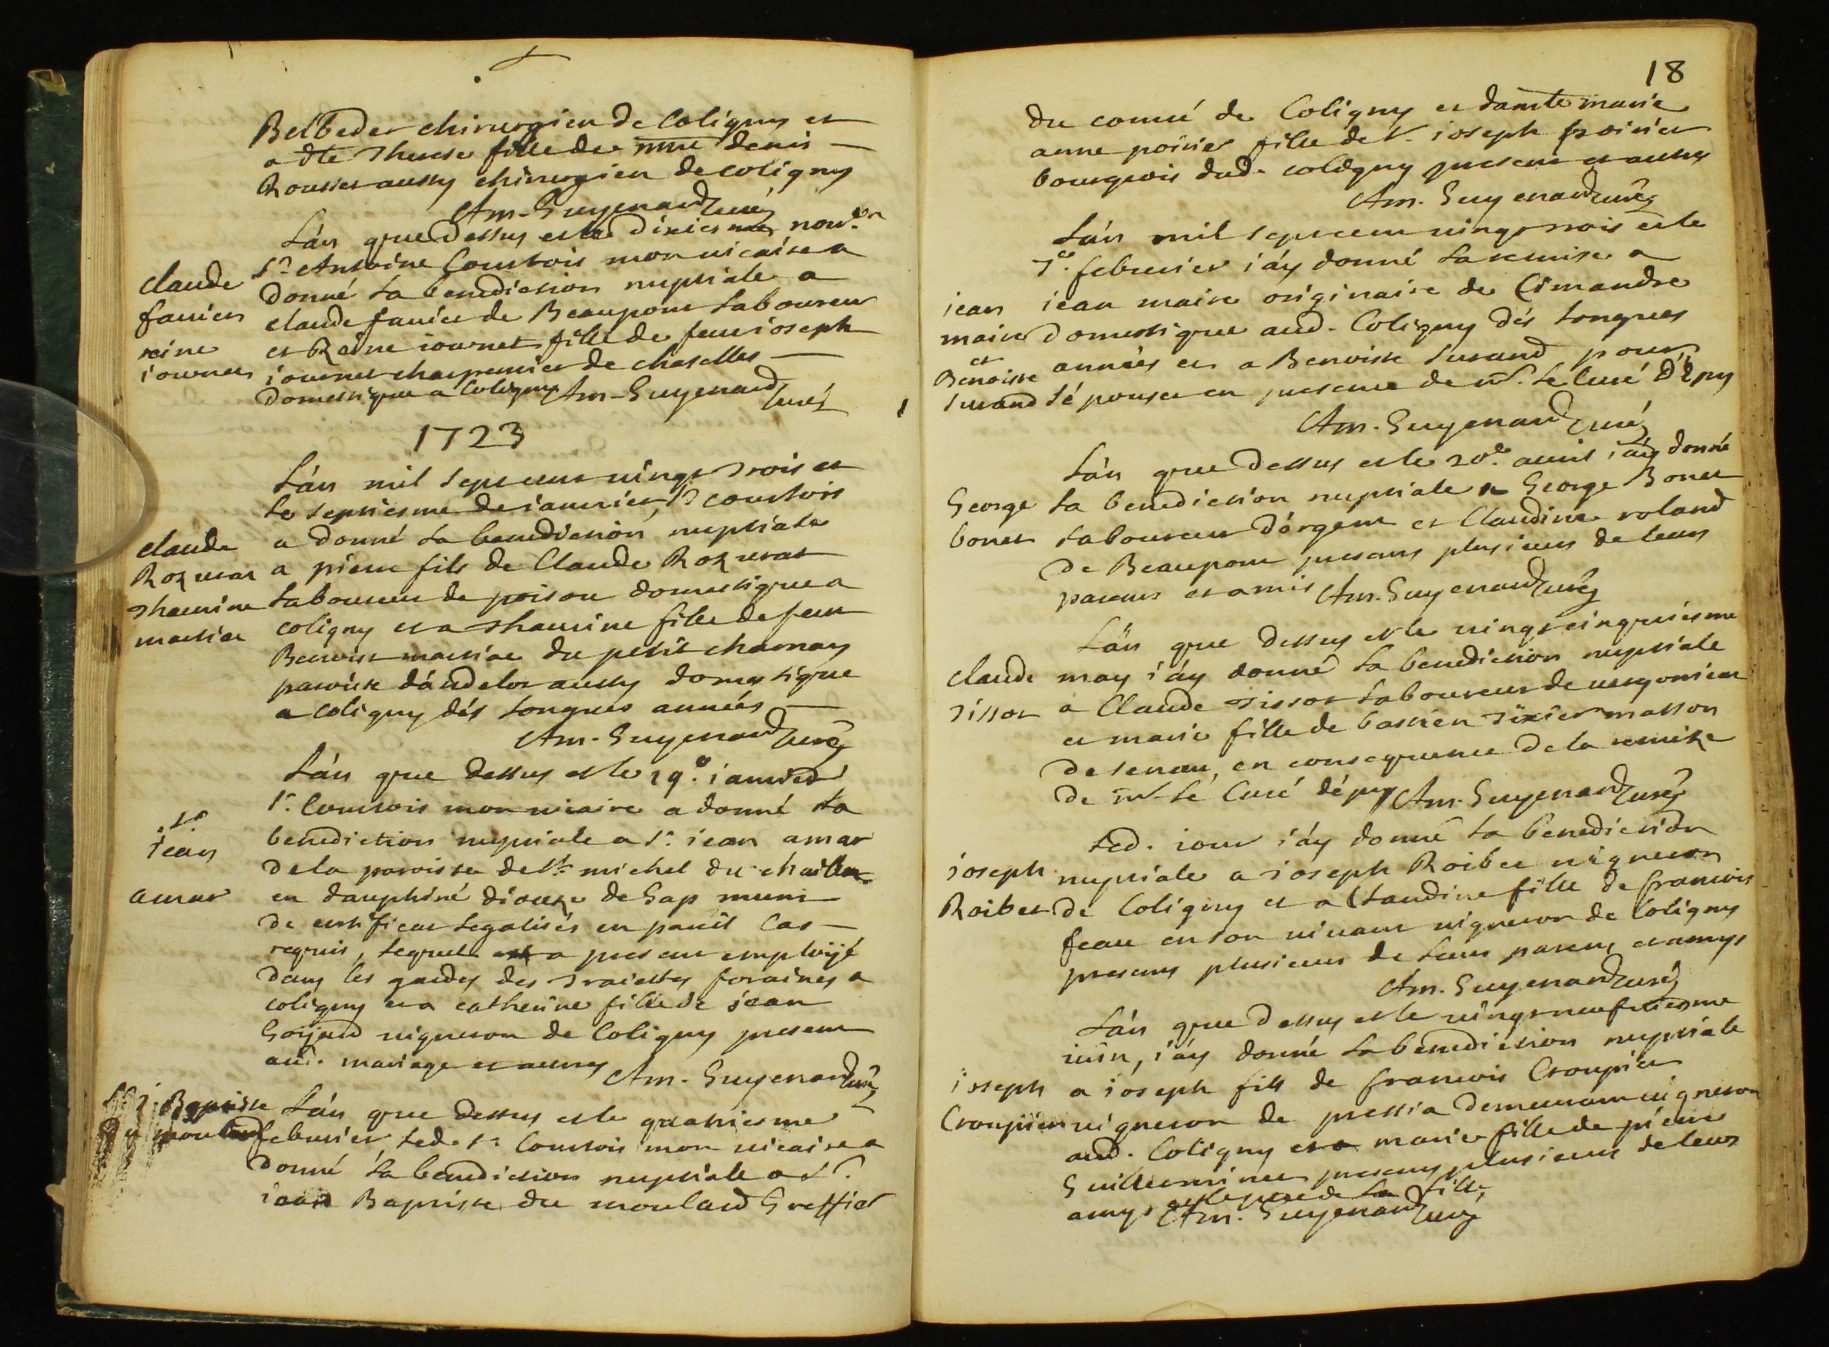 Belbeder chirurgien de Coligny et
a dlle Therese fille de mre denis
Rousset aussy chirurgien de coligny
Am. Guyenard curé
L'án que dessus et le dixiesme nov.bre
Sr. Antoine Courtois mon vicaire a
donné la benediction nuptiale a
claude favier de Beaupont laboureur
et Reine iournet fille de feu ioseph
iournet charpentier de chaselles
domestique a Coligny Am. Guyenard curé
claude
favier
reine
iournet
1723
L'án mil sept cent vingt trois et
le septiesme de ianvier, Sr. courtois
a donné la benediction nuptiale
a pierre fils de Claude Rozerat
laboureur de poisou domestique a
coligny et a thaurine fille de feu
Benoist martine du petit charnay
paroisse d'ándelot aussy domestique
a coligny dés longues années
Am. Guyenard curé
claude
Rozerat
thaurine
martine
L'án que dessus et le 29e. ianvier
Sr. Courtois mon vicaire a donné la
benediction nuptiale a Sr. iean amar
de la paroisse de St. michel du
en dauphiné diocese de Gap muni
de certificat legalisés en pareil Cas
requis, lequel est a present employé
dans les gardes des traictes foraines a
coligny et a catherine fille de iean
Goyard vigneron de Coligny present
aud. mariage et autres Am. Guyenard curé
Sr.
iean
amar
L'án que dessus et le quatriesme
febvrier led. Sr. Courtois mon vicaire a
donné la benediction nuptiale a Sr.
iean Baptiste du moulard Greffier
Baptiste
du moulard
18
du comté de Coligny et damlle marie
anne poirier fille de Sr. ioseph poirier
bourgeois dud. coligny present et autres
Am. Guyenard curé
L'án mil sept cent vingt trois et le
7e. febvrier i'áy donné la remise a
iean maire originaire de Cimandre
domestique aud. Coligny dés longues
années et a Benoiste Durand pour
s'épouser en presence de mr. le Curé D'épy
Am. Guyenard curé
iean
maire
et
Benoiste
Durand
L'án que dessus et le 20e. avril i'áy donné
la benediction nuptiale a George Bonet
laboureur d'órgent et Claudine roland
de Beaupont presents plusieurs de leurs
parents et amis Am. Guyenard curé
George
bonet
L'án que dessus et le vingt cinquiesme
may i'áy donné la benediction nuptiale
a Claude tissot laboureur de vergonieu
et marie fille de bastien tixier masson
de senau, en consequence de la remise
de mr. lé Curé dépy Am. Guyenard curé
claude
tissot
Led. iour i'áy donné la benediction
nuptiale a ioseph Roibet vigneron
de Coligny et a Claudine fille de francois
feau en son vivant vigneron de Coligny
presents plusieurs de leurs parents et amys
Am. Guyenard curé
ioseph
Roibet
L'án que dessus et le vingt neufviesme
iuin, i'áy donné la benediction nuptiale
a ioseph fils de francois Croupier
vigneron de pressia demeurant vigneron
aud. Coligny et a marie fille de pierre
Guillerminet presents plusieurs de leurs
amys et le pere de la fille
Am. Guyenard curé
ioseph
Croupier